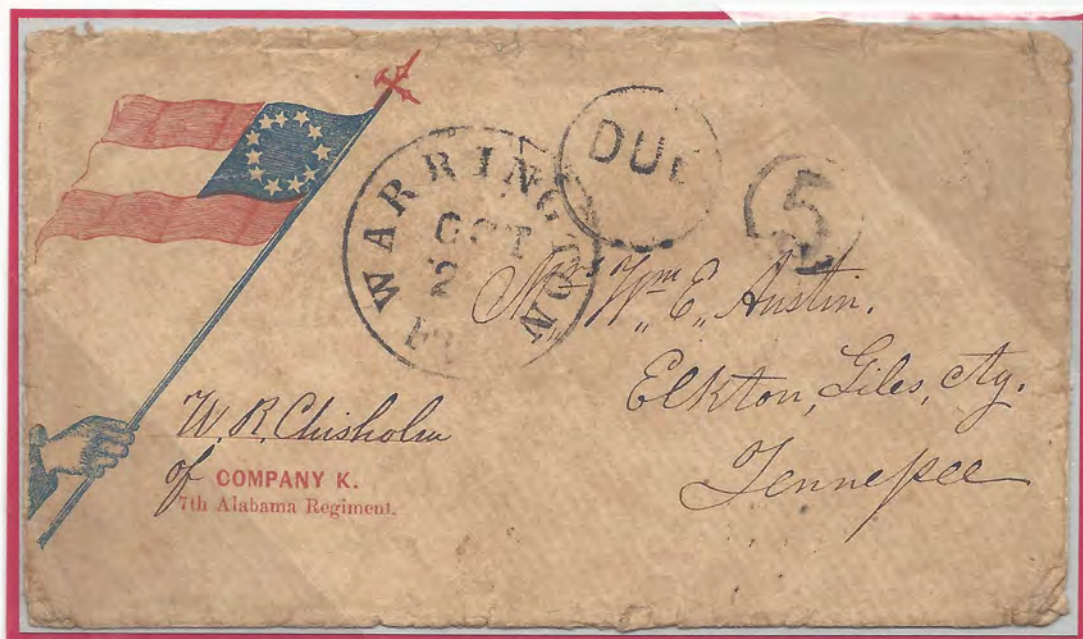 WARRINGTON
OCT
2
Fl
DUE
5
Mrs Wm E, Austin.
Elkton, Giles, Cty.
Tennessee
W. R. Chisholm
of COMPANY K.
7th Alabama Regiment.